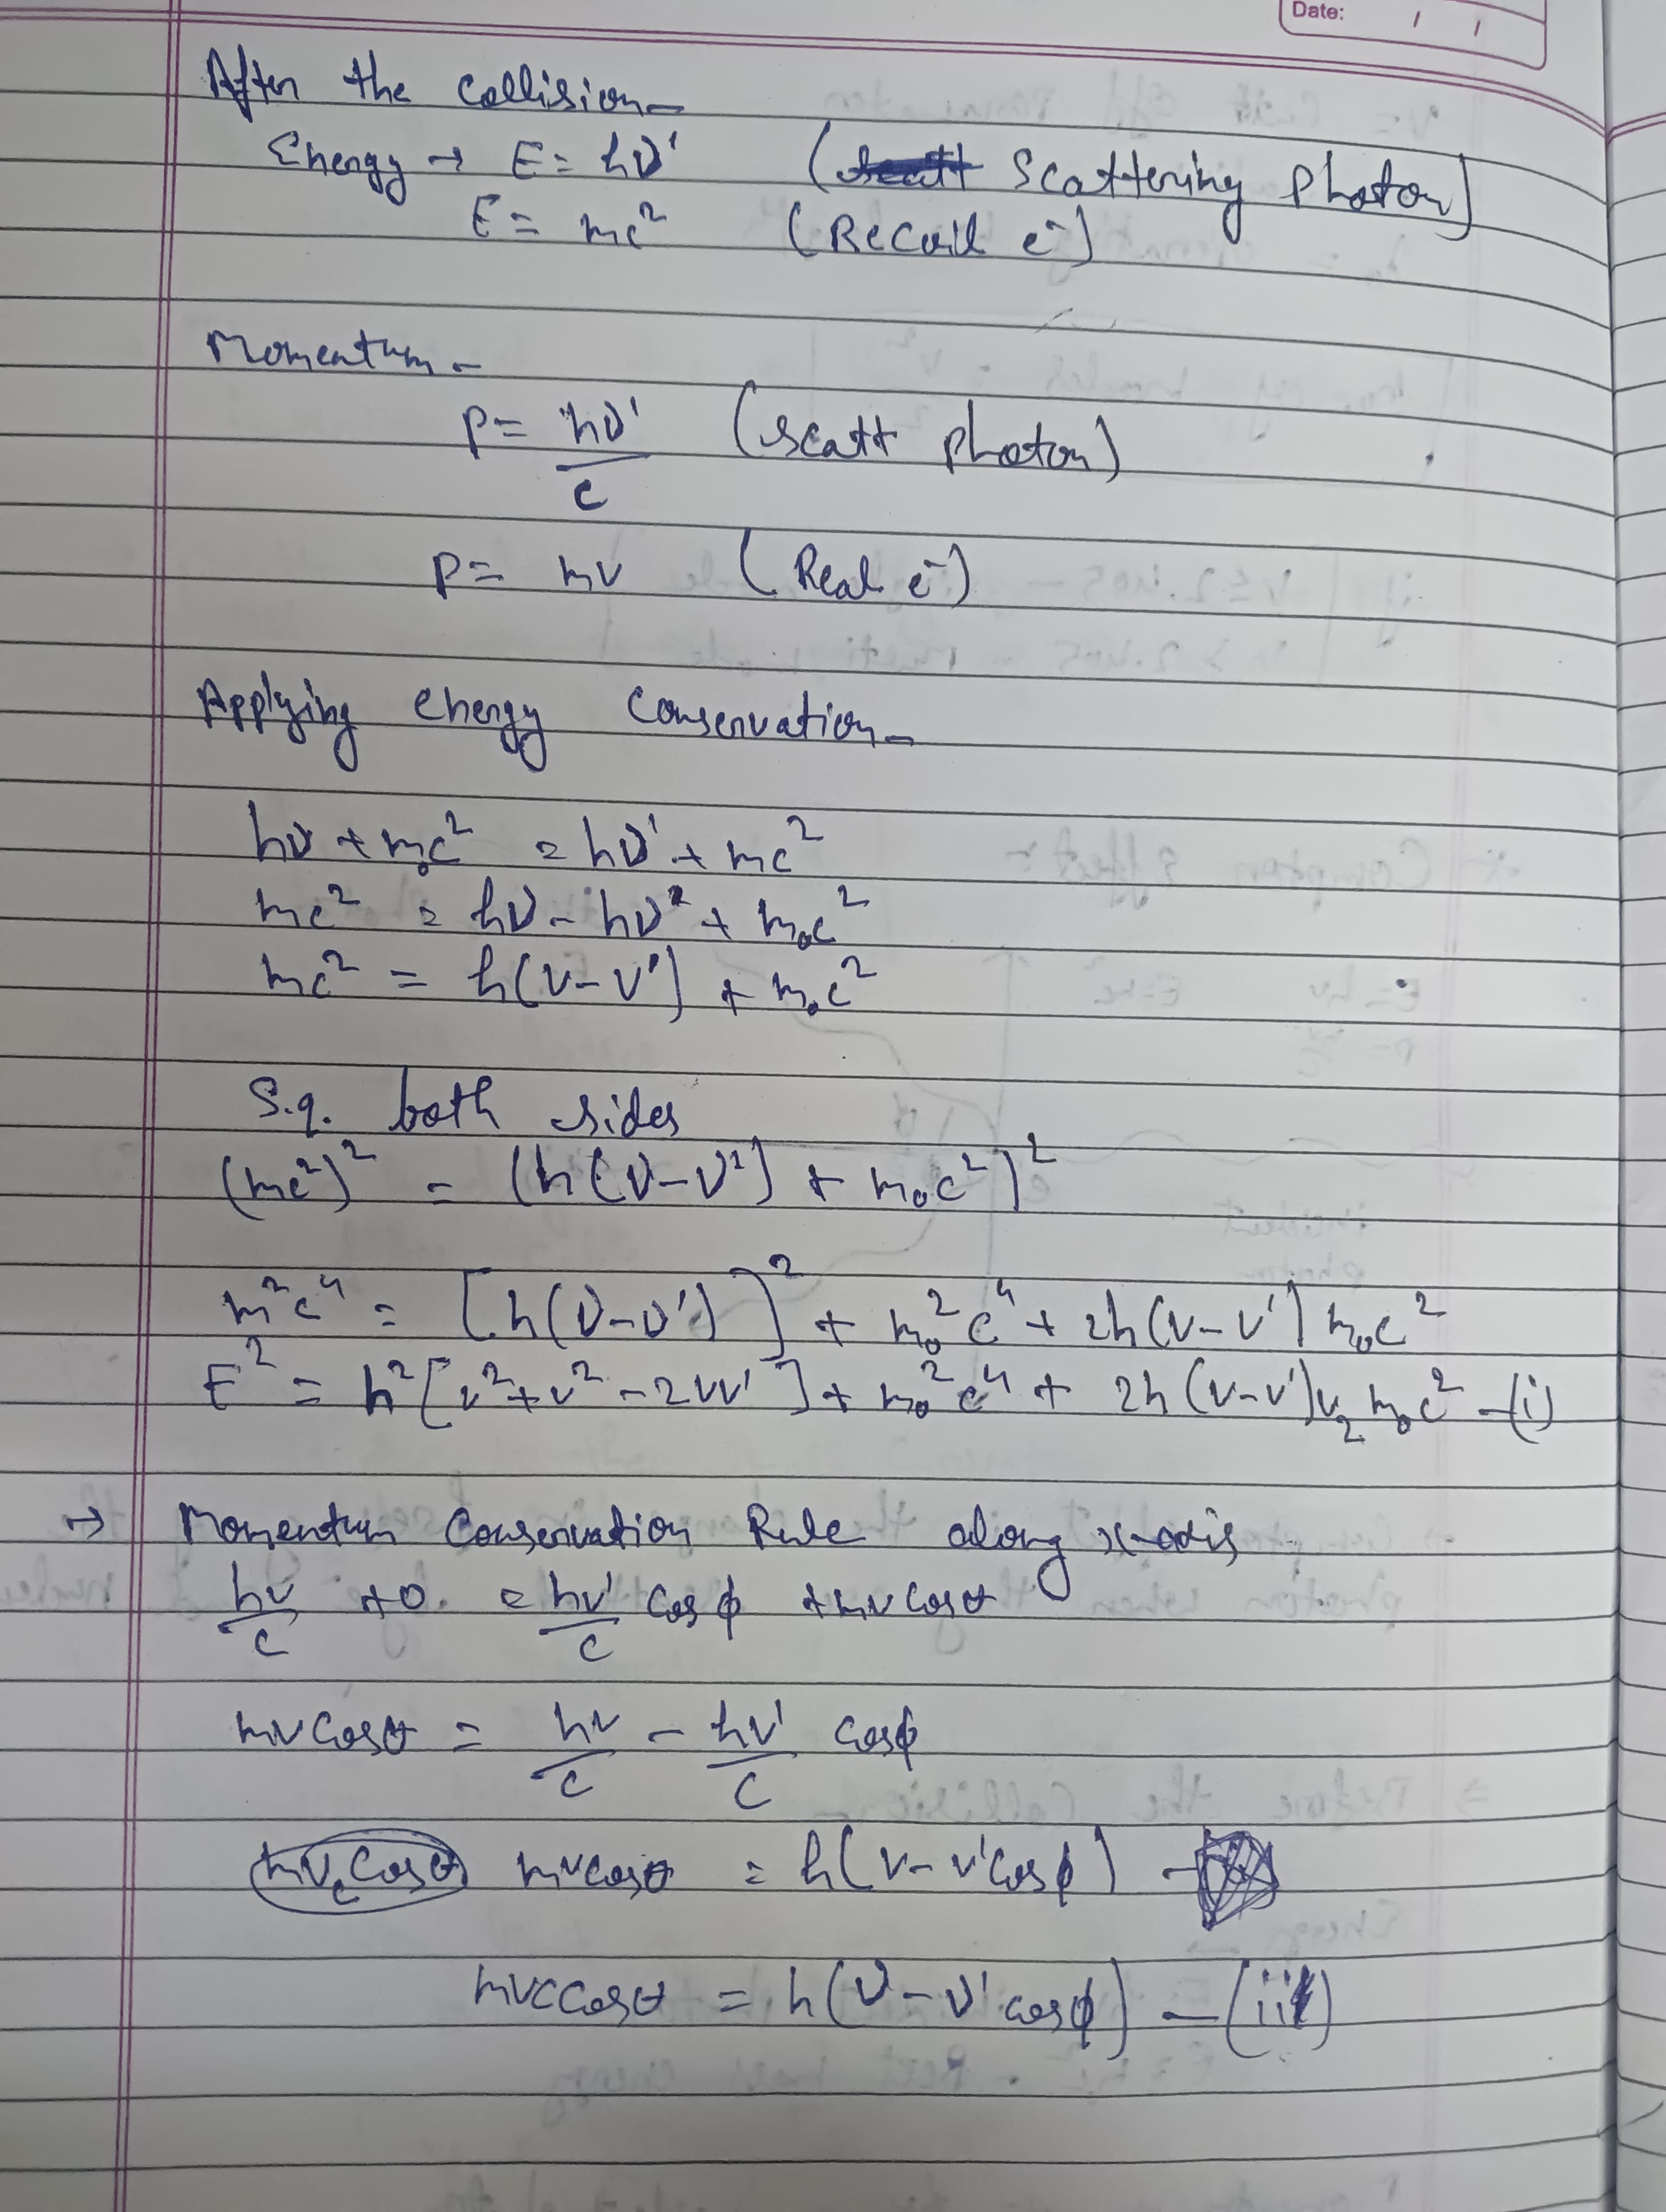 Date: / /
After the collision-
Energy → E = hν' (Scattering Photon)
E = mc² (Recoil e⁻)
Momentum -
P = hν'/c (scatt photon)
P = mv (Real e⁻)
Applying energy conservation-
hν + m₀c² = hν' + mc²
mc² = hν - hν' + m₀c²
mc² = h(ν-ν') + m₀c²
S.q. both sides
(mc²)² = (h(ν-ν') + m₀c²)²
m²c⁴ = [h(ν-ν')]² + m₀²c⁴ + 2h(ν-ν') m₀c²
E² = h²[ν²+ν² - 2νν'] + m₀²c⁴ + 2h(ν-ν')ν₂ m₀c² -(i)
→ Momentum Conservation Rule along x-axis
hν/c + 0 = hν'/c cosϕ + mv cosθ
mv cosθ = hν/c - hν'/c cosϕ
mv c cosθ mv cosθ = h(ν - ν'cosϕ) -
mvc cosθ = h(ν - ν' cosϕ) - (ii)